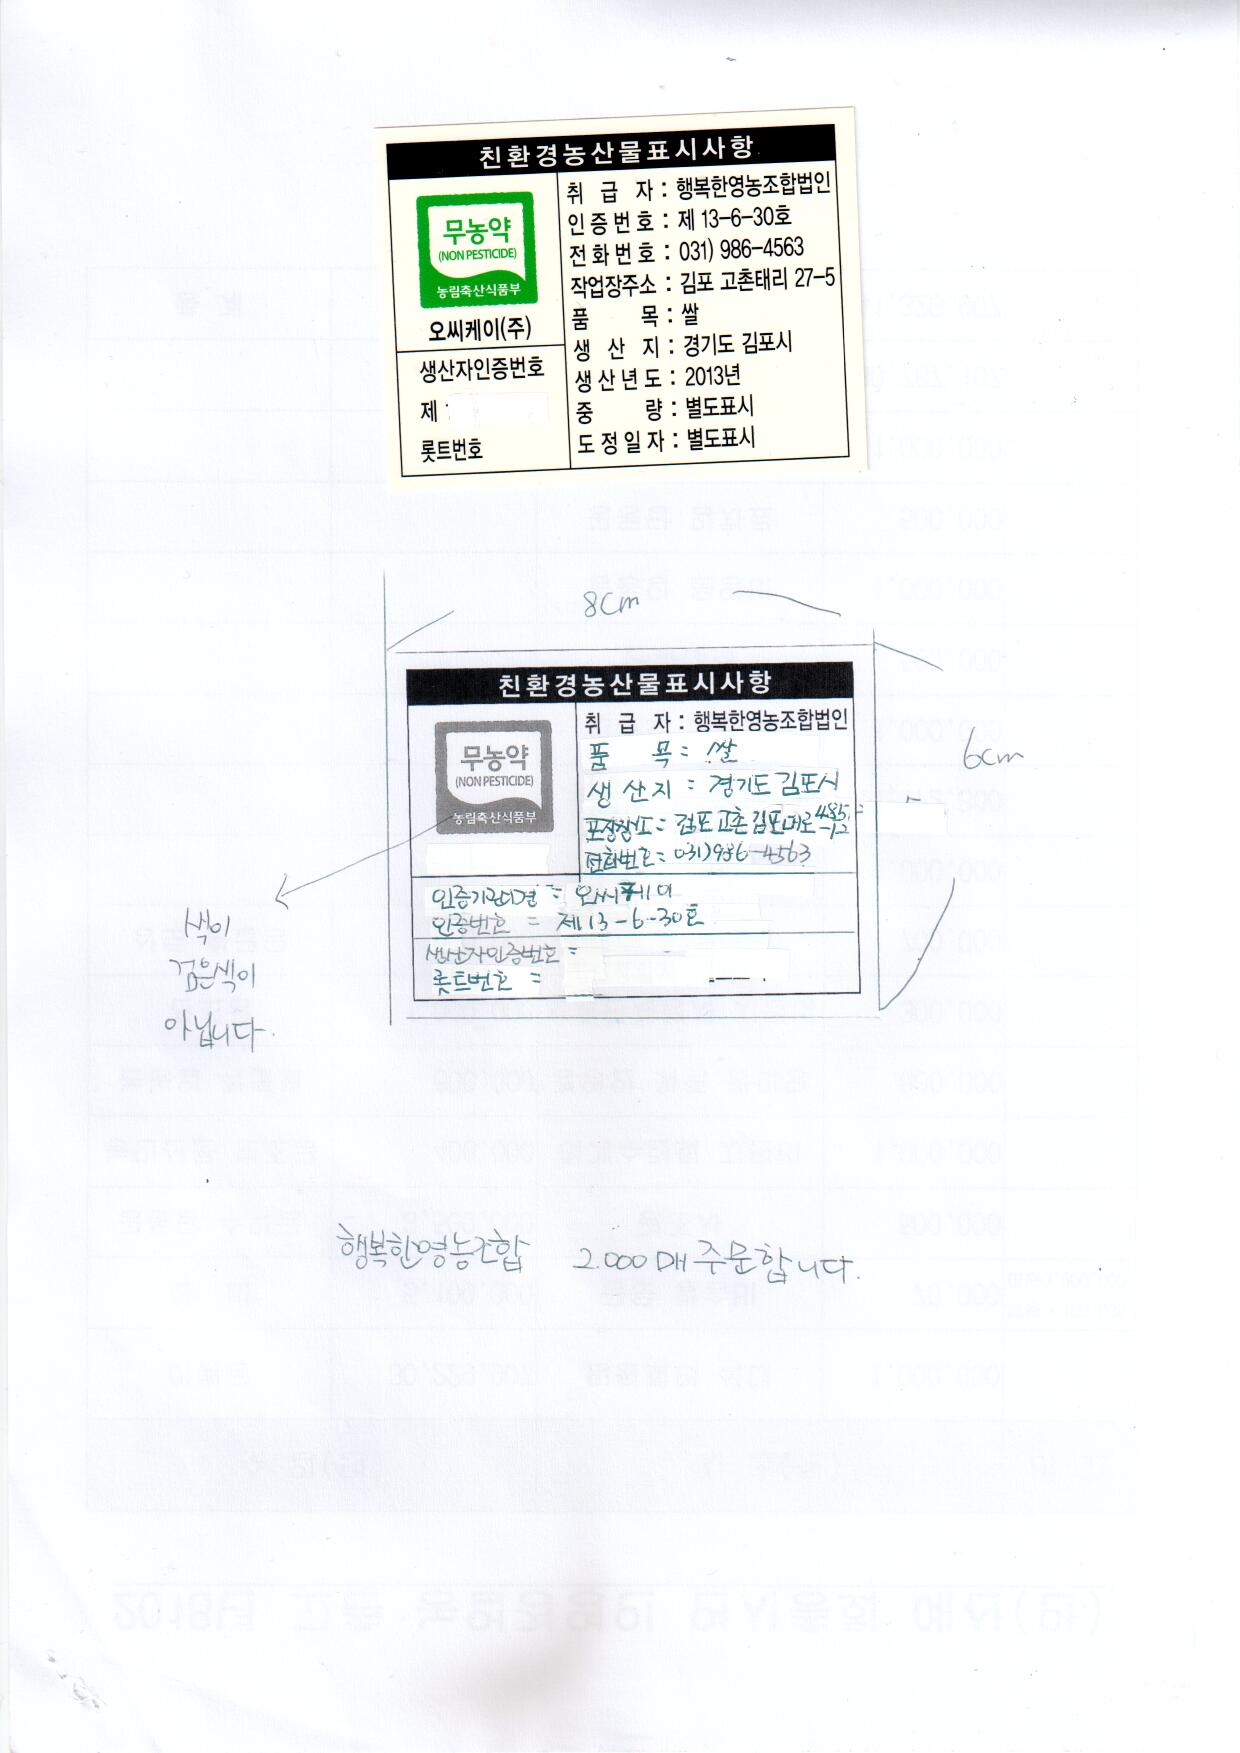 친환경농산물표시사항
무농약
(NON PESTICIDE)
농림축산식품부
오씨케이(주)
생산자인증번호
제
롯트번호
취 급 자 : 행복한영농조합법인
인증번호 : 제 13-6-30호
전화번호 : 031) 986-4563
작업장주소 : 김포 고촌태리 27-5
품 목 : 쌀
생 산 지 : 경기도 김포시
생산년도 : 2013년
중 량 : 별도표시
도정일자 : 별도표시
8cm
6cm
친환경농산물표시사항
무농약
(NON PESTICIDE)
농림축산식품부
취 급 자 : 행복한영농조합법인
품 목 = 쌀
생 산지 = 경기도 김포시
김포 고촌 김포대로 485
전화번호 = 031) 986-4563
인증기관명 = 오씨케이
인증번호 = 제 13-6-30호
생산자인증번호 =
롯트번호 =
색이
검은색이
아닙니다.
행복한영농조합 2.000매 주문합니다.